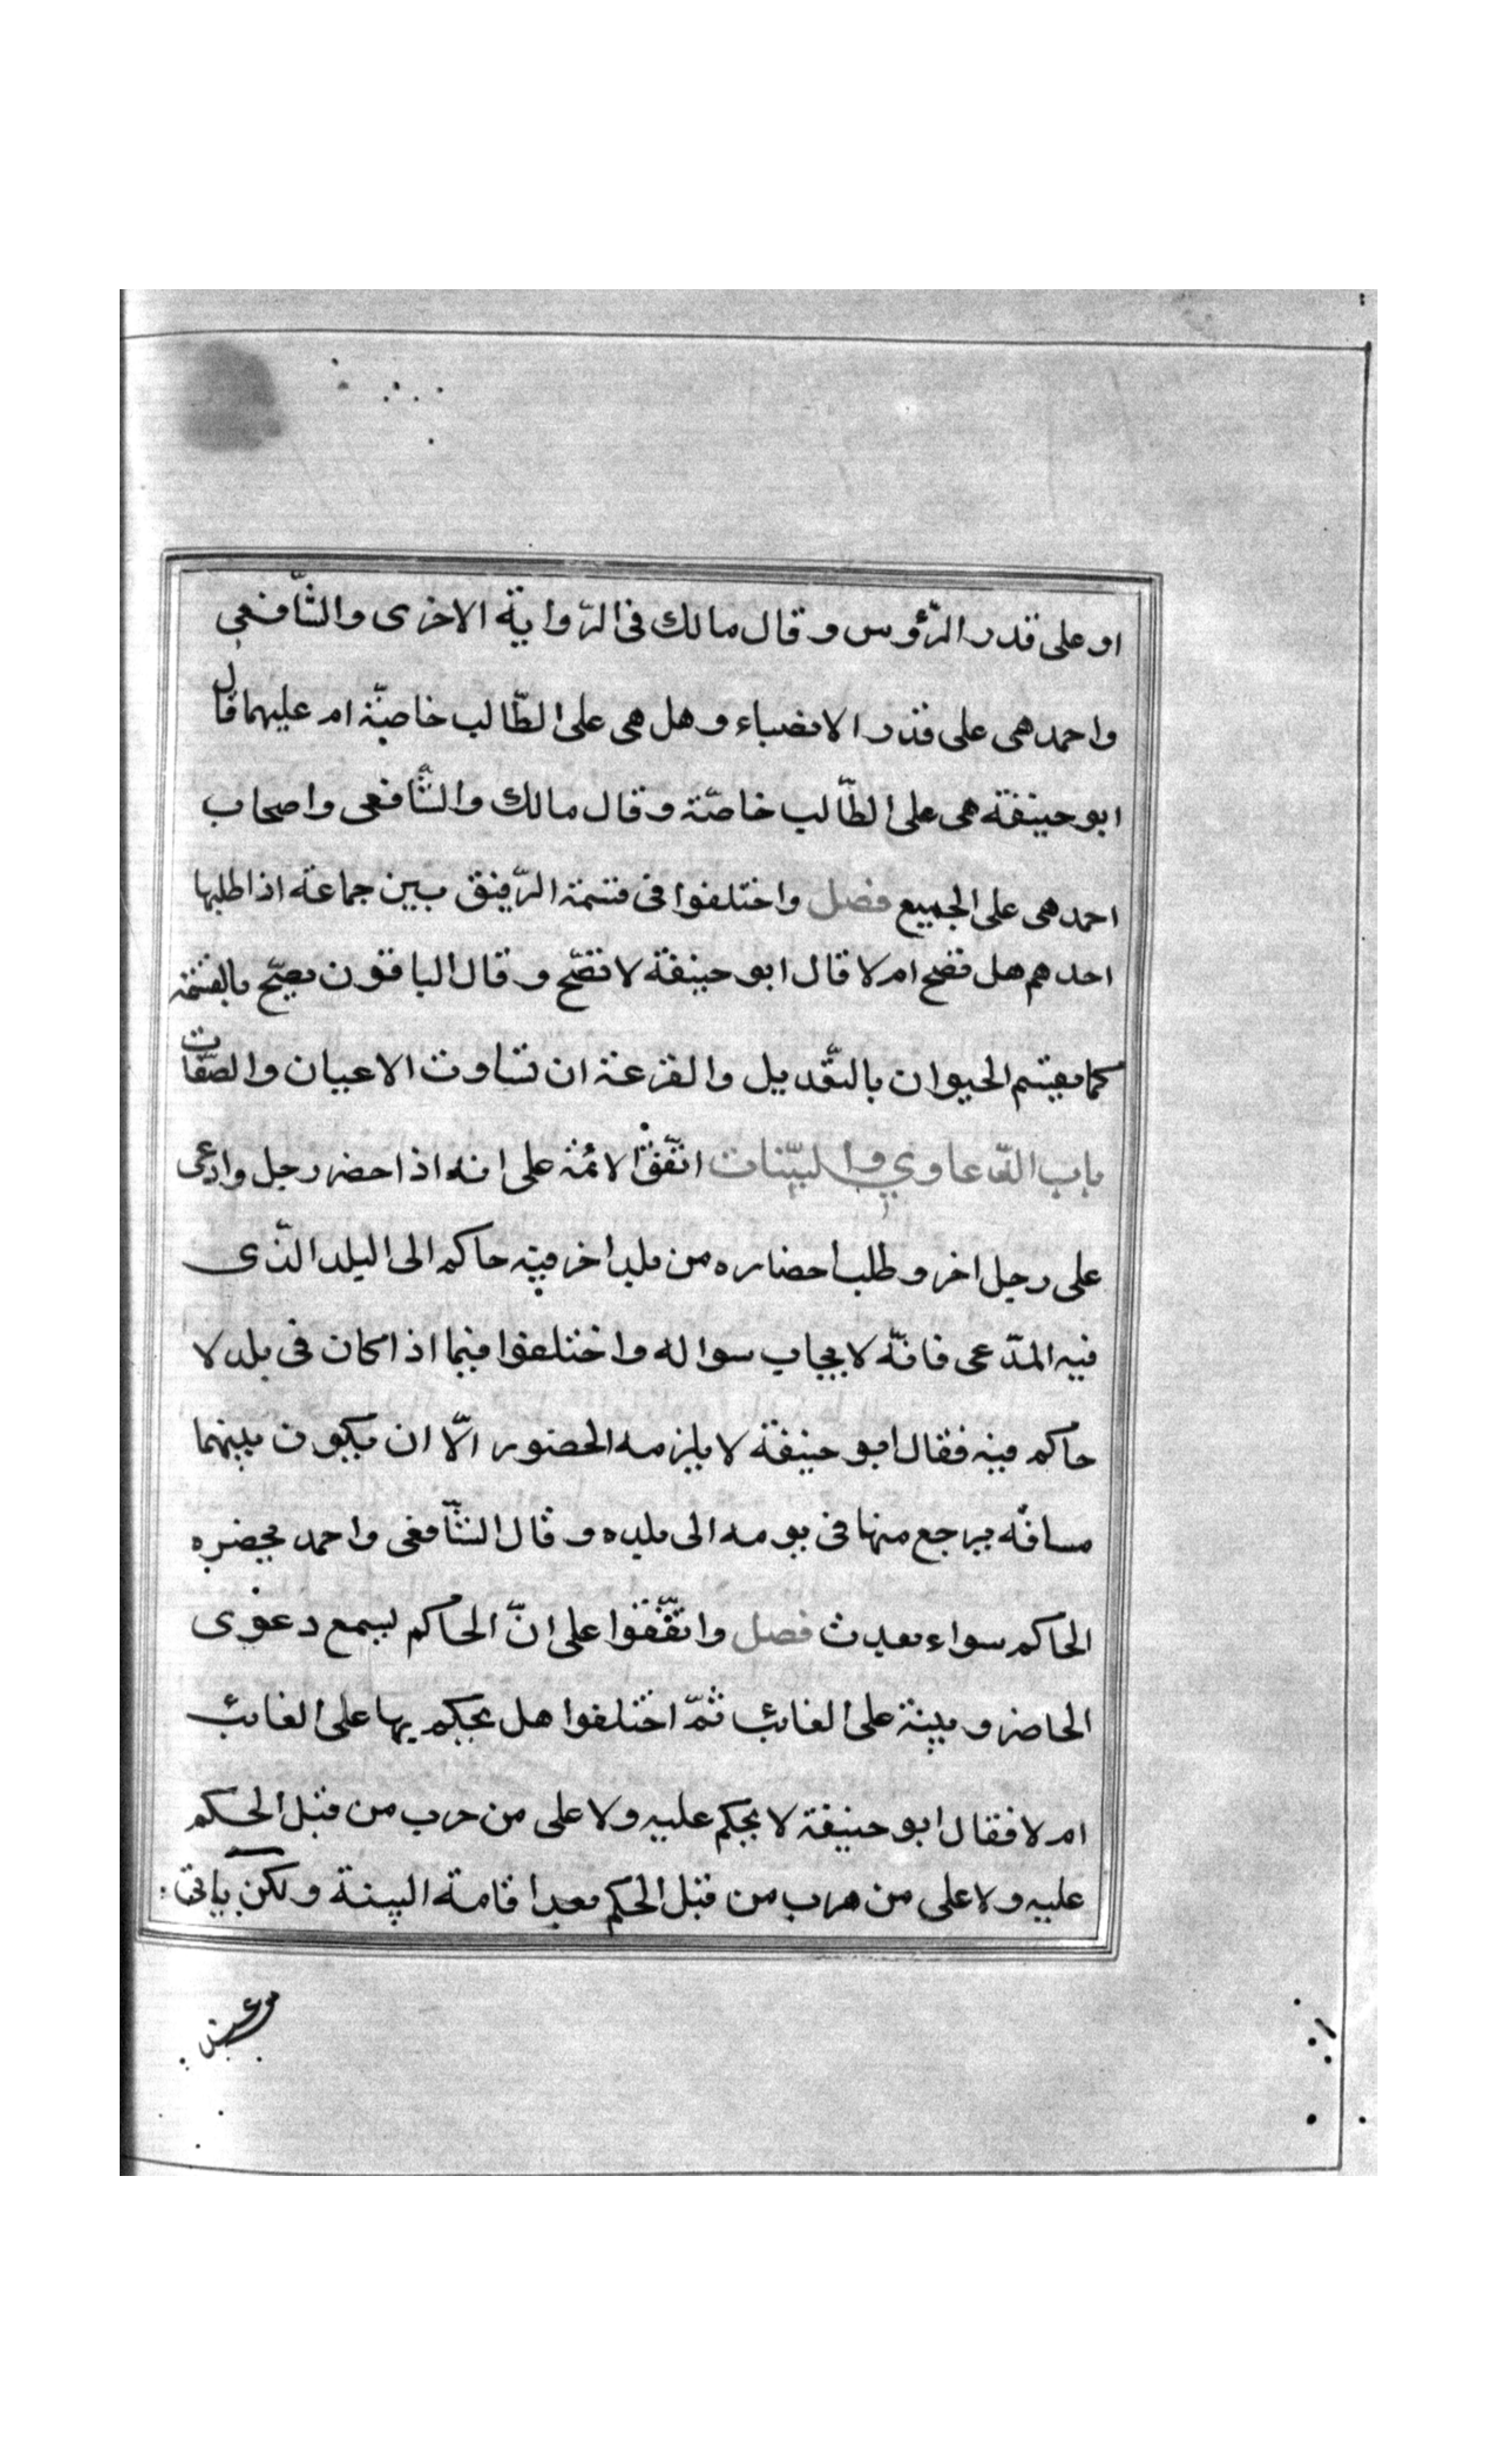 او على قدر الرّؤوس وقال مالك فى الرّواية الاخرى والشّافعى
واحمد هى على قدر الانصباء وهل هى على الطّالب خاصّة ام عليهما قال
ابو حنيفة هى على الطّالب خاصّة وقال مالك والشّافعى واصحاب
احمد هى على الجميع فصل واختلفوا فى قسمة الرّقيق بين جماعة اذا طلبها
احدهم هل تصح ام لا قال ابو حنيفة لا تصّح وقال الباقون يصّح بالقسمة
كما يقسم الحيوان بالتّعديل والقرعة ان تساوت الاعيان والصّفات
باب الدّعاوي والبيّنات اتّفق الائمّة على انه اذا حضر رجل وادعى
على رجل اخر وطلب احضاره من بلد اخر فيه حاكم الى البلد الذّى
فيه المدّعى فانّه لا يجاب سواله واختلفوا فيما اذا كان فى بلد لا
حاكم فيه فقال ابو حنيفة لا يلزمه الحضور الّا ان يكون بينهما
مسافة يرجع منها فى يومه الى بلده وقال الشّافعى واحمد يحضره
الحاكم سواء بعدت فصل واتّفقوا على انّ الحاكم يسمع دعوى
الحاضر وبينة على الغائب ثمّ اختلفوا هل يحكم بها على الغائب
ام لا فقال ابو حنيفة لا يحكم عليه ولا على من هرب من قبل الحكم
عليه ولا على من هرب من قبل الحكم بعد اقامة البينة ولكن ياتى